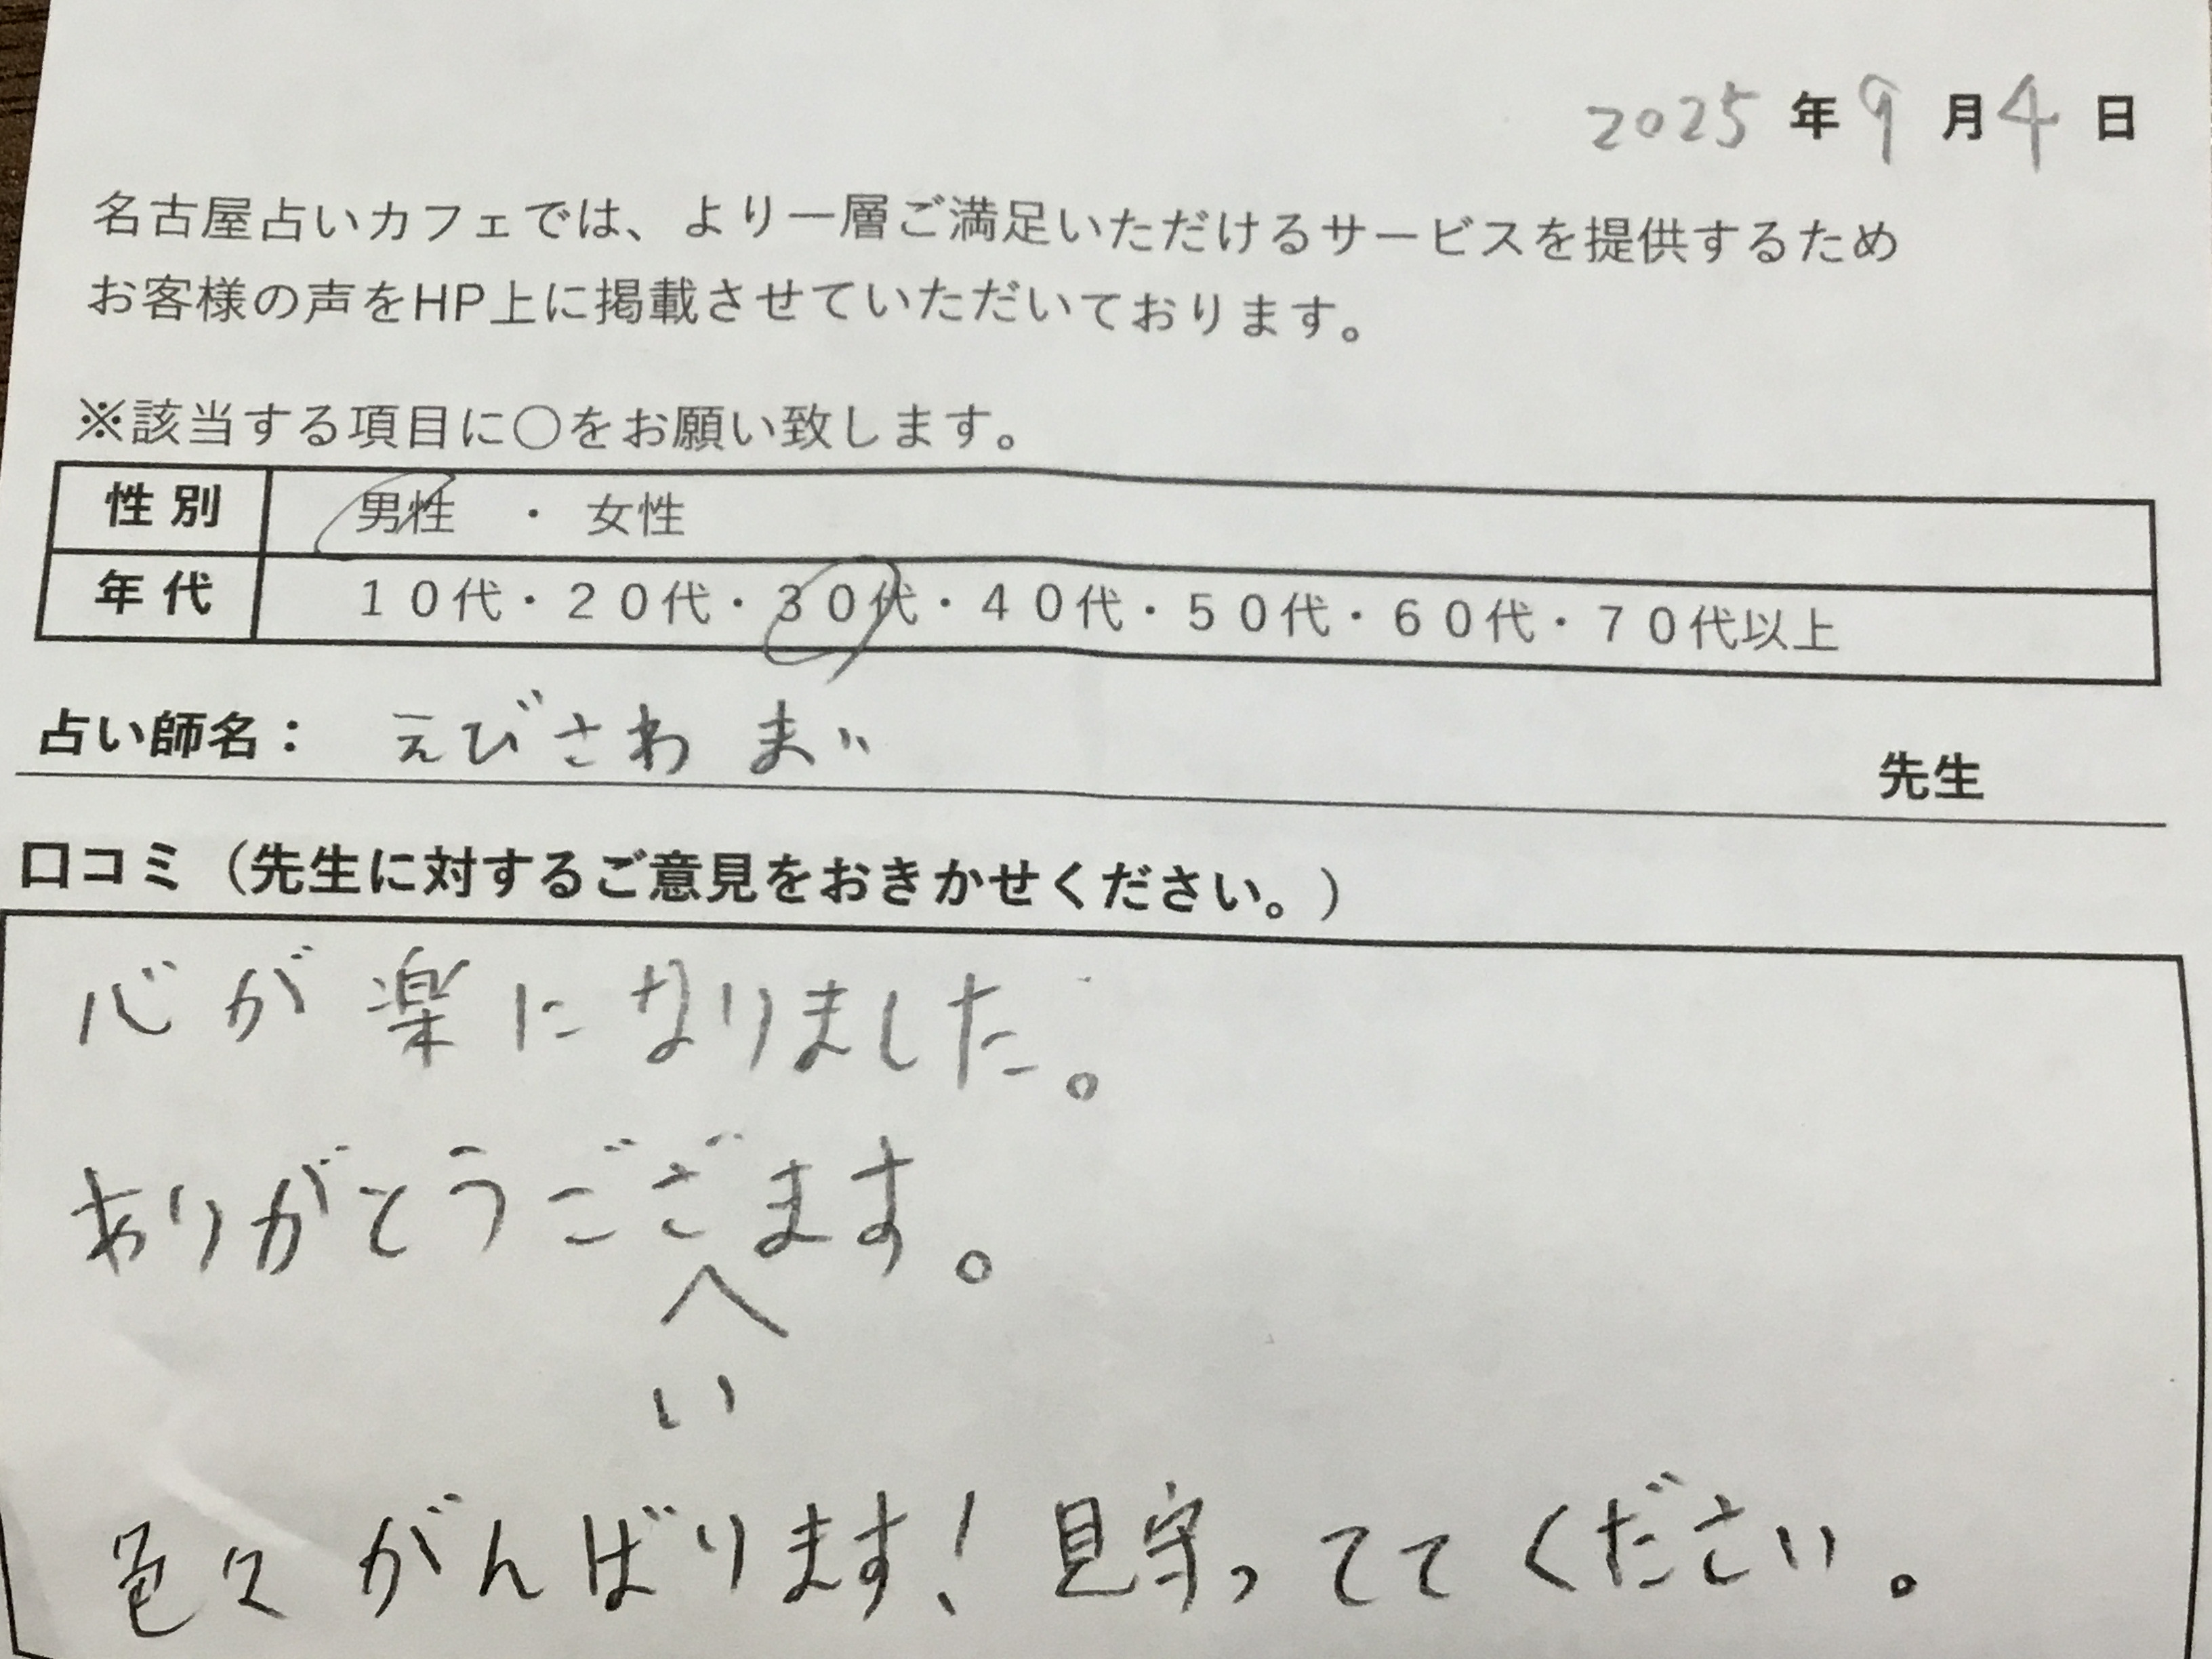 2025 年 9 月 4 日
名古屋占いカフェでは、より一層ご満足いただけるサービスを提供するため
お客様の声をHP上に掲載させていただいております。
※該当する項目に〇をお願い致します。
性別 男性 ・ 女性
年代 １０代・２０代・３０代・４０代・５０代・６０代・７０代以上
占い師名： えびさわ まい 先生
口コミ（先生に対するご意見をおきかせください。）
心が楽になりました。
ありがとうござます。
い
色々がんばります！見守っててください。